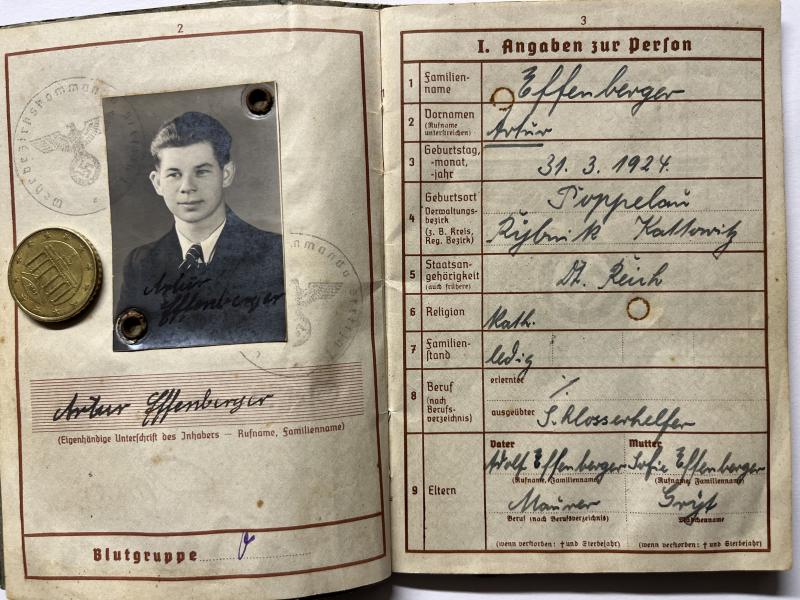 2
Wehrbezirkskommando
Artur
Effenberger
Artur Effenberger
(Eigenhändige Unterschrift des Inhabers — Rufname, Familienname)
Blutgruppe
3
I. Angaben zur Person
1 Familien-
name
Effenberger
2 Vornamen
(Rufname
unterstreichen)
Artur
3 Geburtstag,
-monat,
-jahr
31. 3. 1924.
4 Geburtsort
Verwaltungs-
bezirk
(z. B. Kreis,
Reg. Bezirk)
Poppelau
Rybnik Kattowitz
5 Staatsan-
gehörigkeit
(auch frühere)
Dt. Reich
6 Religion
Kath.
7 Familien-
stand
ledig
8 Beruf
(nach
Berufs-
verzeichnis)
erlernter
ausgeübter Schlosserhelfer
9 Eltern
Vater Mutter
Adolf Effenberger Sofie Effenberger
(Rufname, Familienname) (Rufname, Familienname)
Maurer
Beruf (nach Berufsverzeichnis) Mädchenname
(wenn verstorben: † und Sterbejahr) (wenn verstorben: † und Sterbejahr)